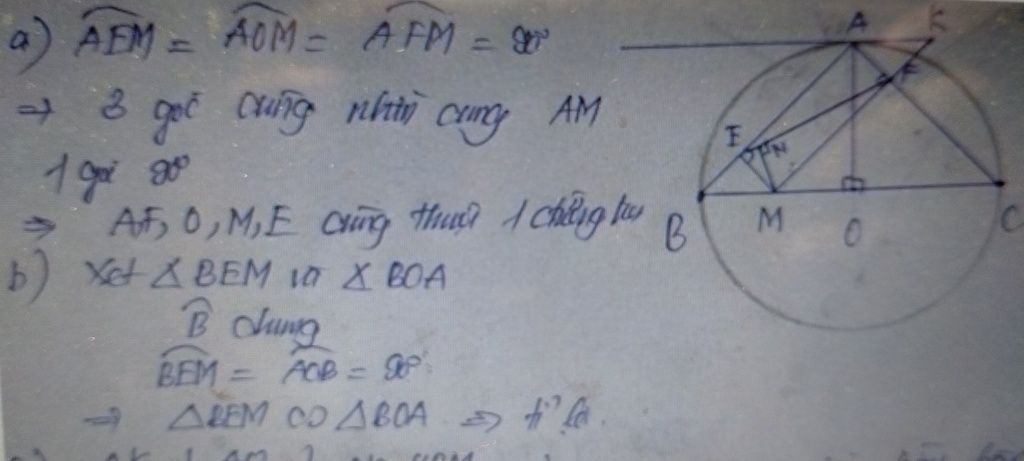 a) AEM = AOM = AFM = 90°
⇒ 3 góc cùng nhìn cung AM
1 góc 90°
⇒ A,F, O, M, E cùng thuộc 1
b) Xét Δ BEM và Δ BOA
B chung
BEM = AOB = 90°
⇒ ΔBEM ∽ ΔBOA ⇒ tỉ lệ.
A K
F
E N
B M O C